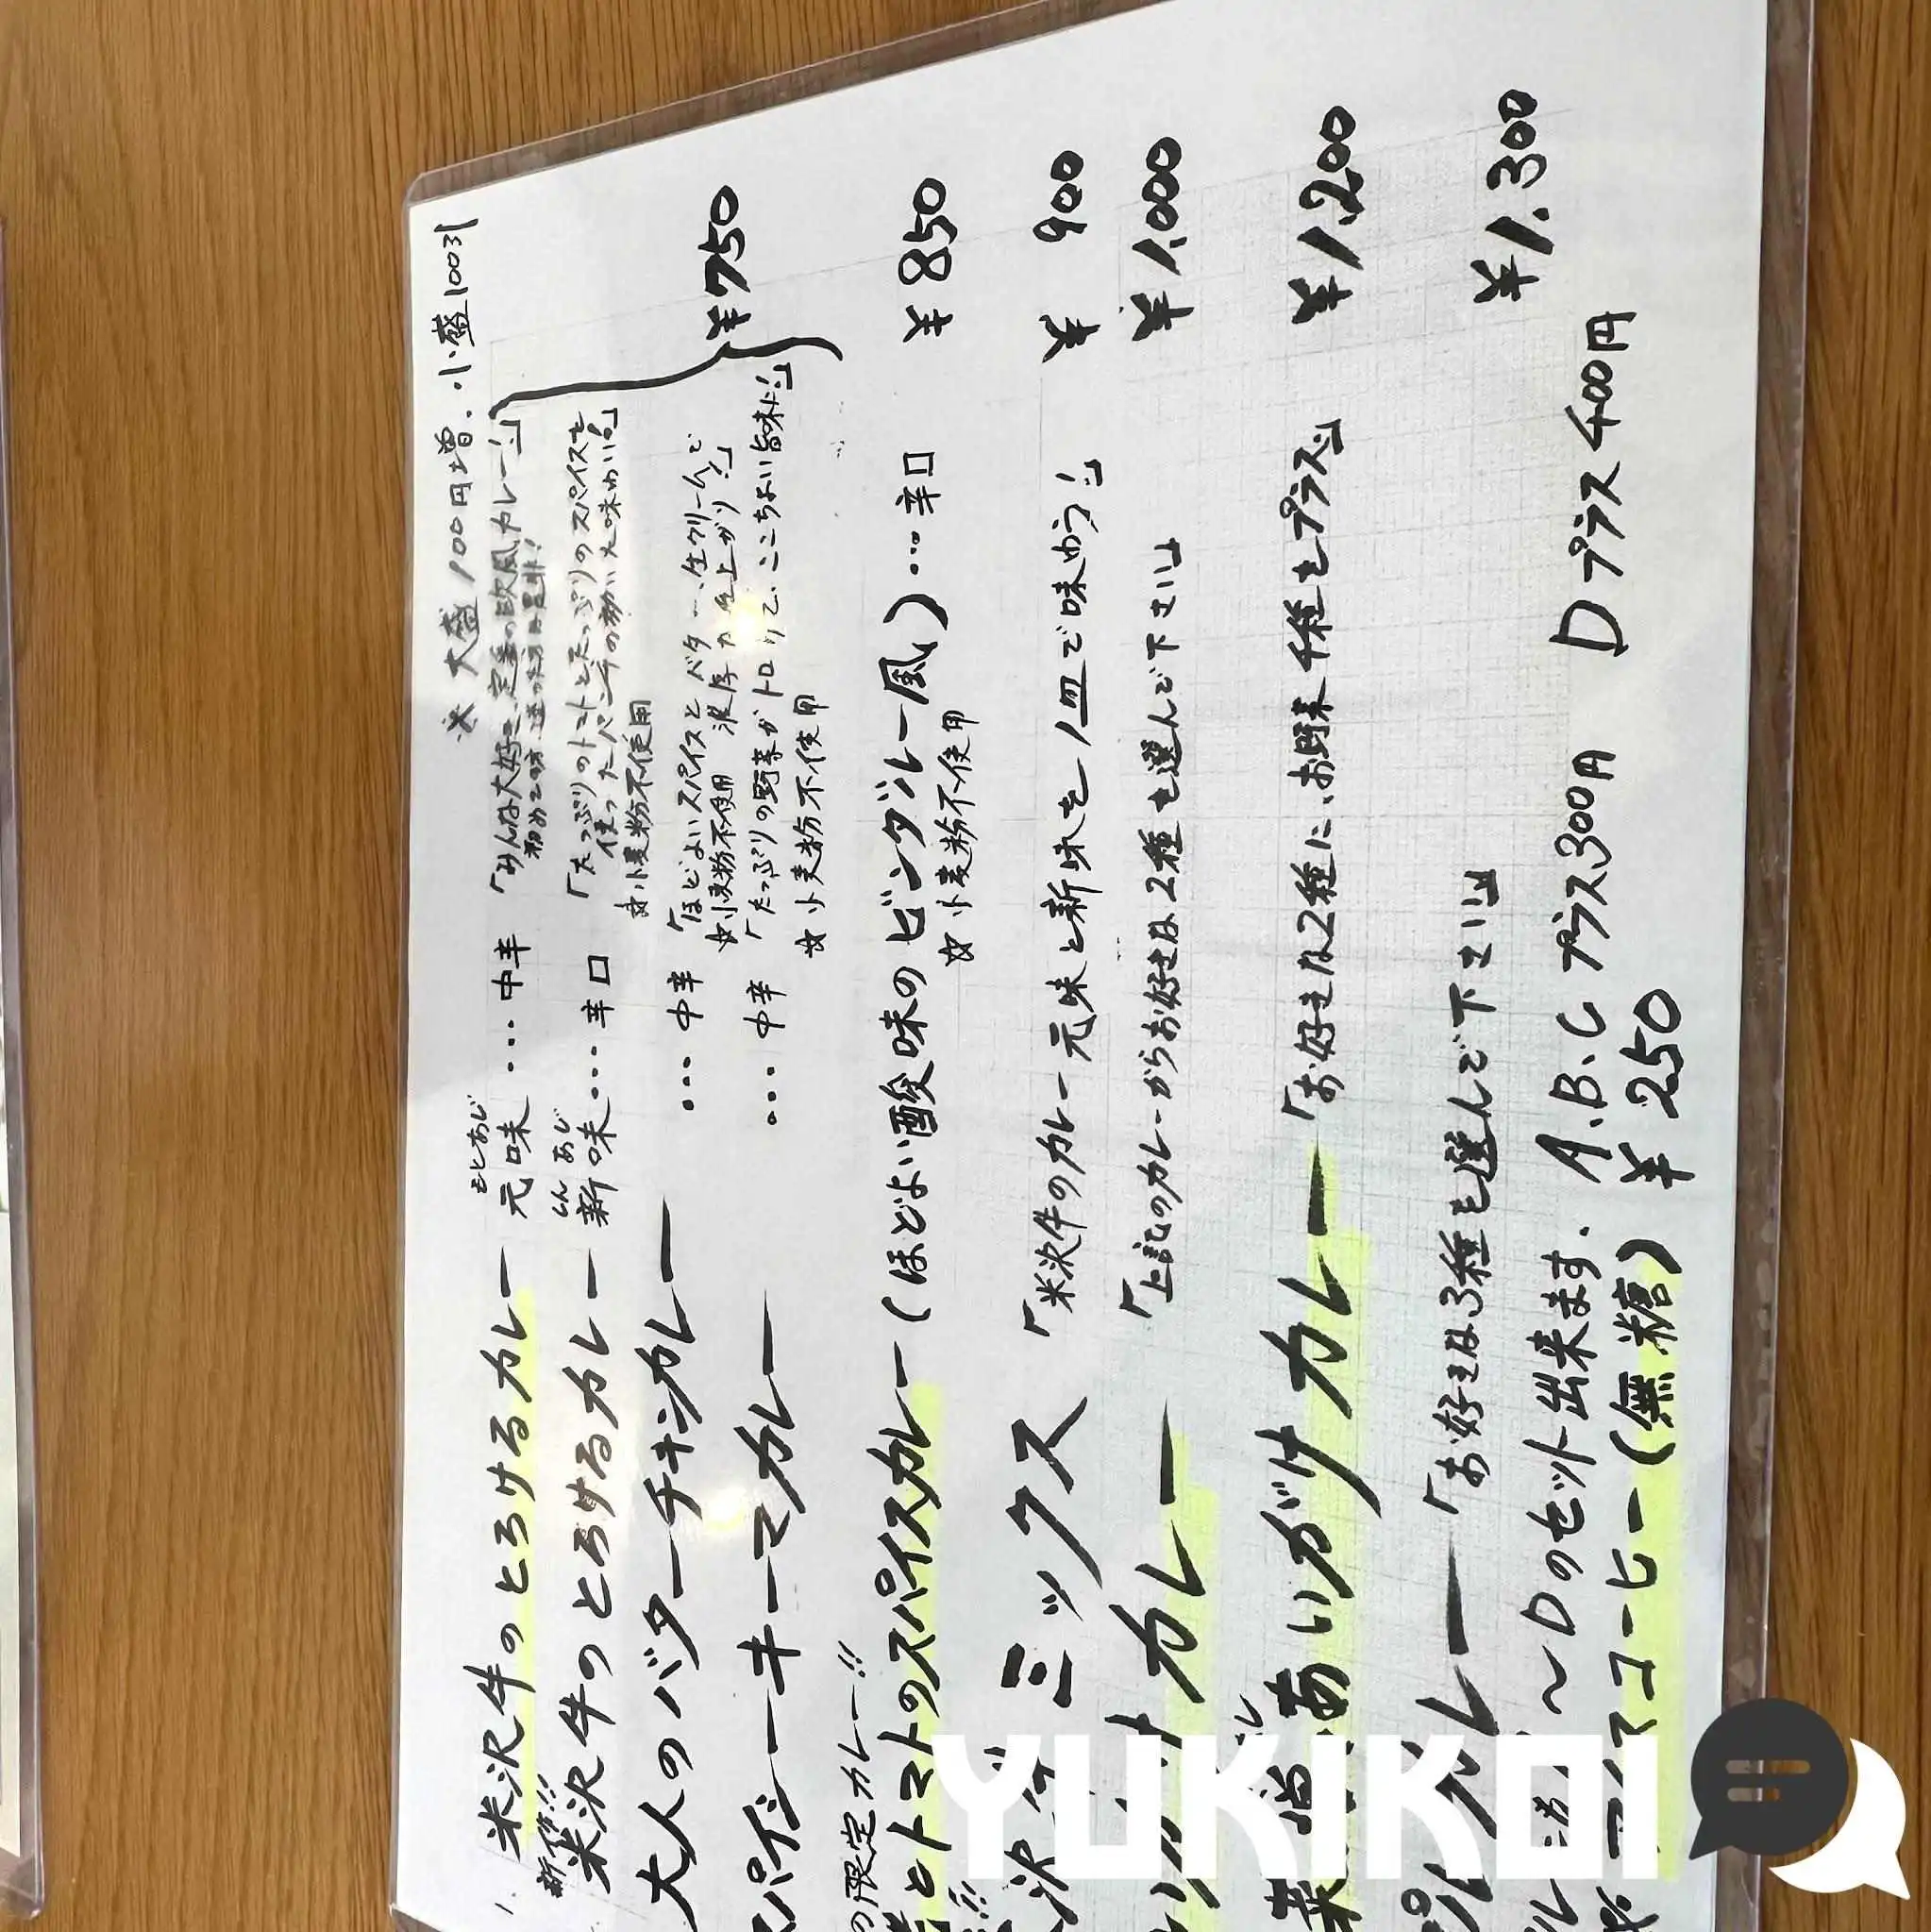 ※ 大盛100円増. 小盛100引
米沢牛のとろけるカレー 元味 … 中辛 「みんな大好き、定番の欧風カレー!」
もとあじ
初めての方、迷った方は是非!
新作!!
米沢牛のとろけるカレー 新味 … 辛口 「たっぷりのトマトとたっぷりのスパイスを
しんあじ
使ったパンチの効いた味わい!」
☆小麦粉不使用
大人のバターチキンカレー … 中辛 「ほどよいスパイスとバター、生クリームで
☆小麦粉不使用 濃厚な仕上がり!」
スパイシーキーマカレー … 中辛 「たっぷりの野菜がトロリと、ここちよい旨味に!」
☆小麦粉不使用
¥750
限定カレー!!
とトマトのスパイスカレー (ほどよい酸味のビンダルー風) … 辛口 ¥850
☆小麦粉不使用
ミックス 「米沢牛のカレー元味と新味を1皿で味わう!」 ¥900
カレー 「上記のカレーからお好きな2種を選んで下さい」 ¥1,000
あいがけカレー 「お好きな2種に、お野菜4種をプラス」 ¥1,200
カレー 「お好きな3種を選んで下さい」 ¥1,300
〜Dのセット出来ます. A.B.C プラス300円 Dプラス400円
コーヒー(無糖) ¥250
YUKIKOI